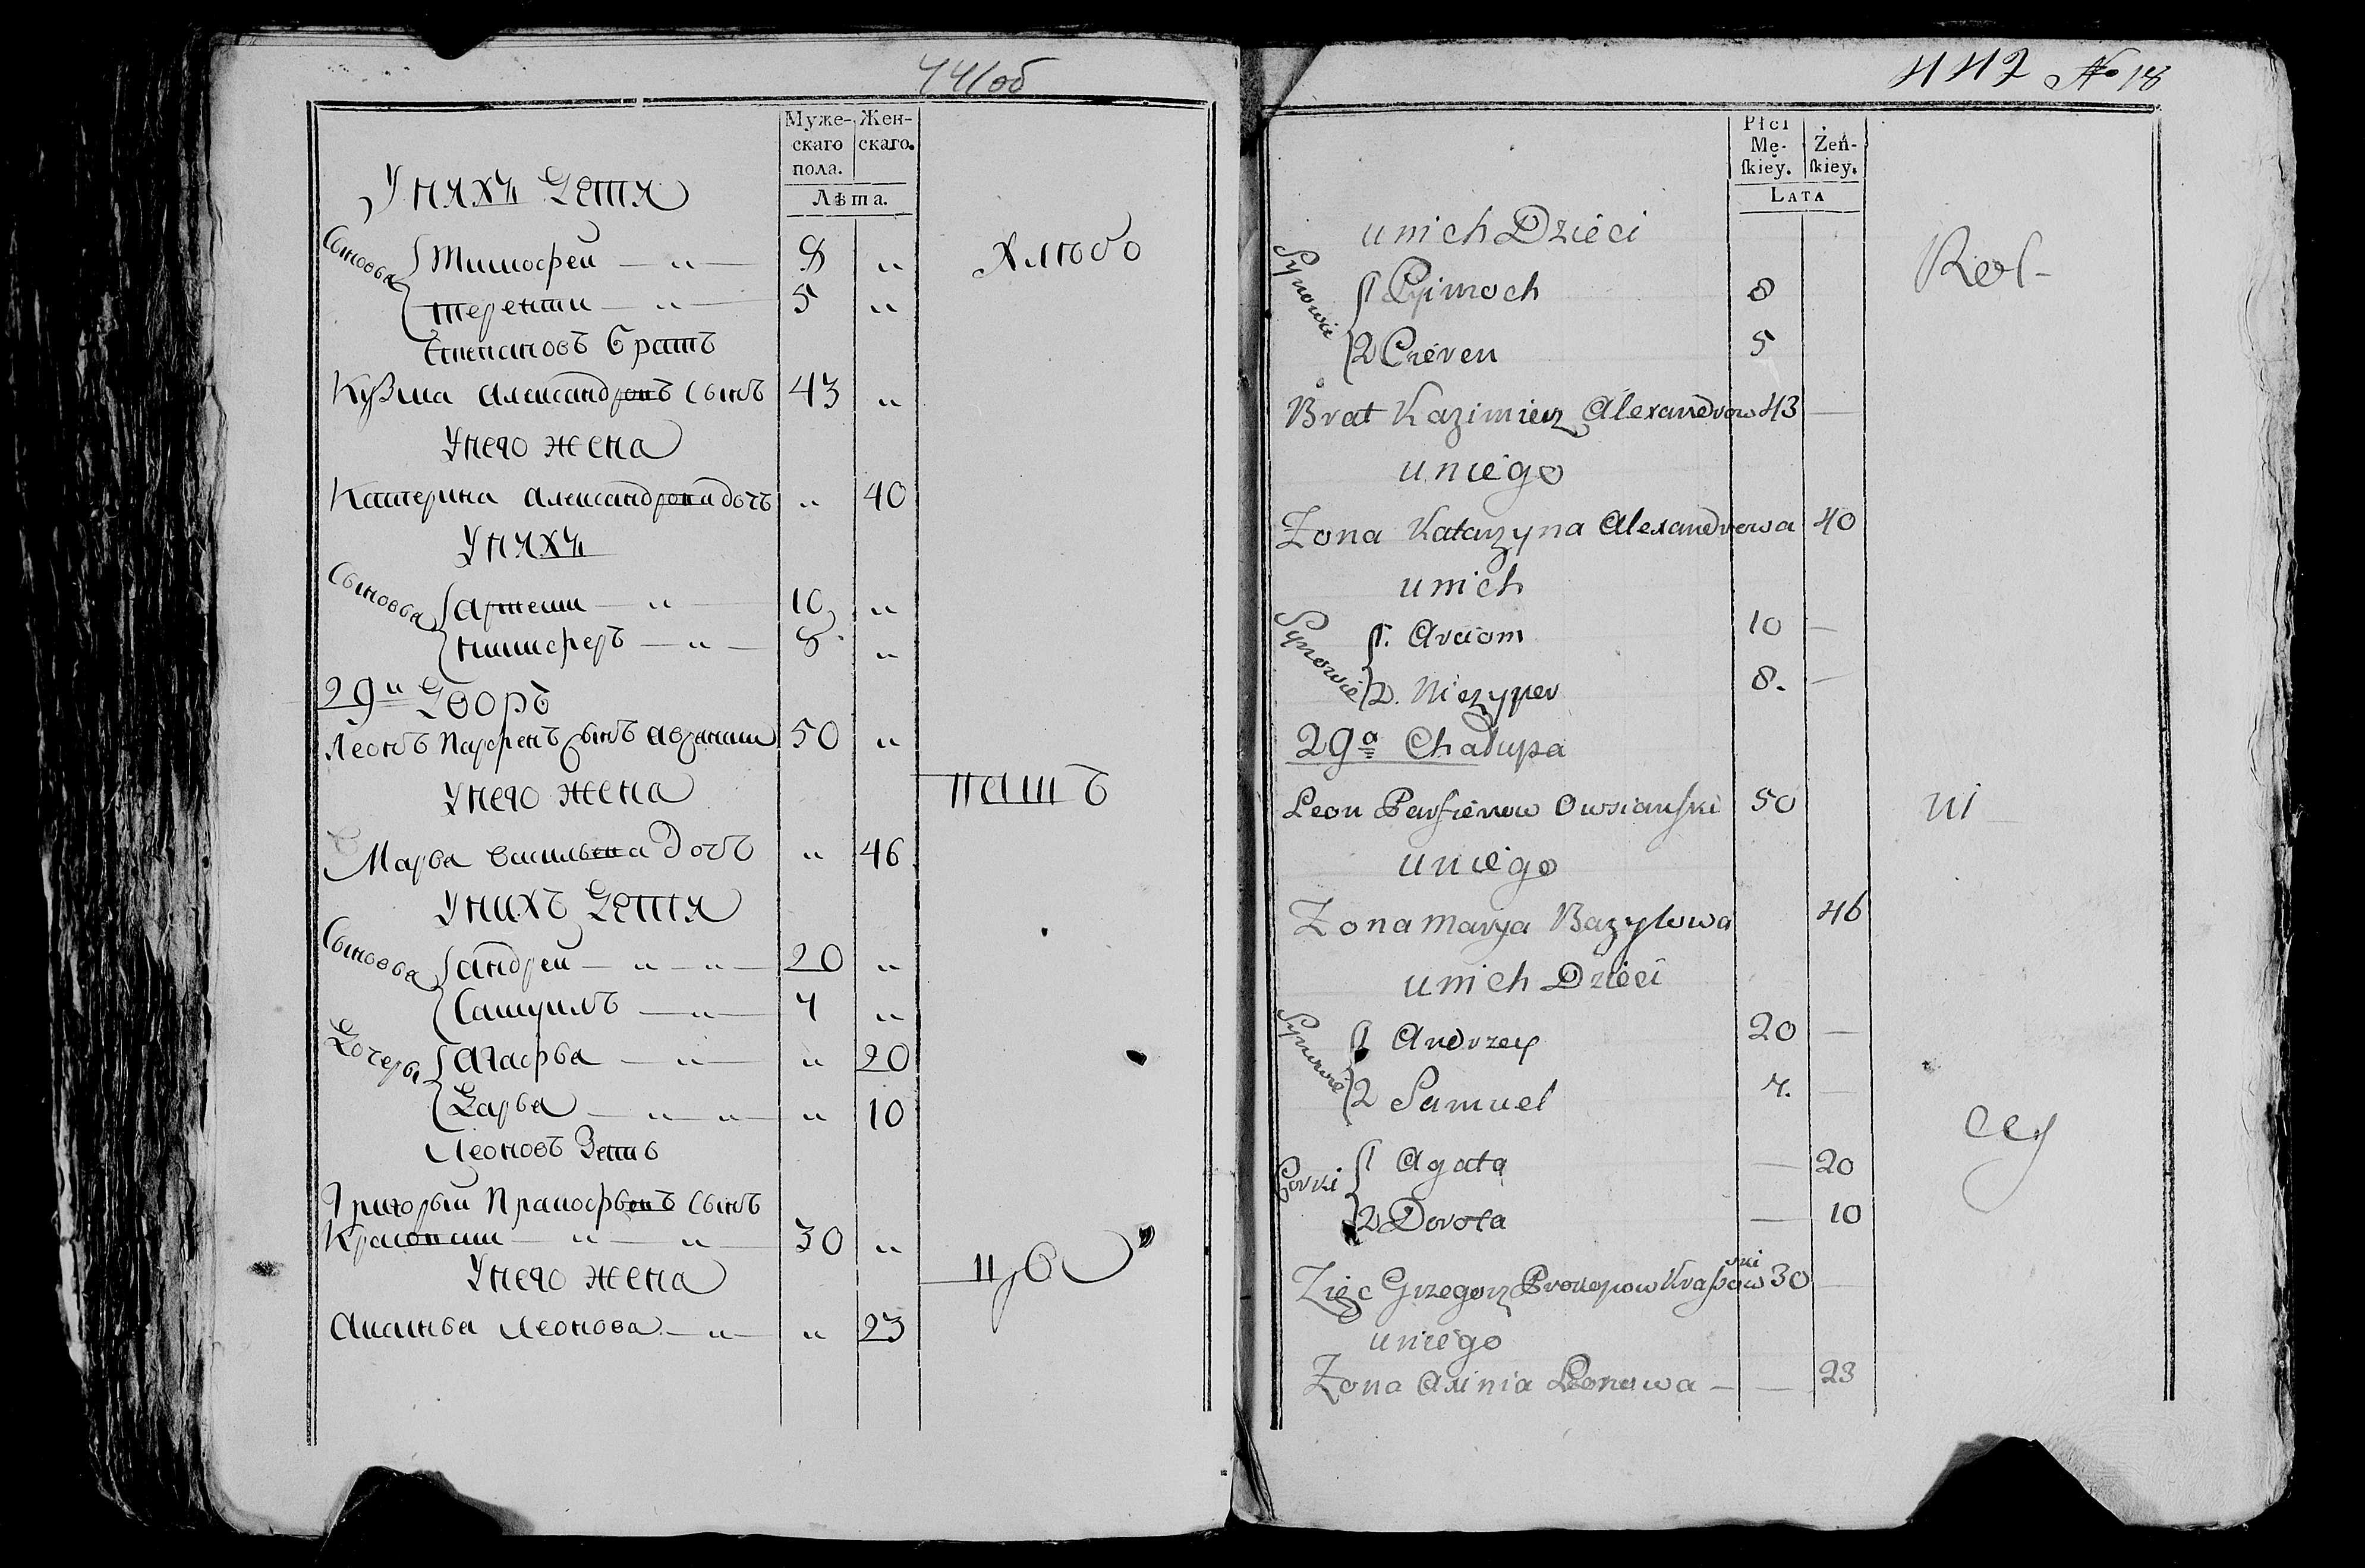 441об
Муже- Жен-
скаго скаго.
пола.
Лѣта.
У нихъ дети
Сыновья
Тимофеи 8 „
Хлюбо
терентии 5 „
Степановъ братъ
Кузма александровъ сынъ 43 „
У него жена
Катерина александрова дочь „ 40
У нихъ
Сыновья
артеми 10 „
никиферъ 8 „
29и Дворъ
Леонъ Парфенъ сынъ 50 „
У него жена
Марва васильева дочь „ 46
У нихъ дети
Сыновья
андреи 20 „
Самуилъ 7 „
Дочеры
агафьа „ 20
Дарьа „ 10
Леоновъ Зеть
Григорыи сынъ
30 „
У него жена
Леонова „ 23
442 No 18
Płci
Mę- Żeń-
ſkiey. ſkiey.
LATA
u nich Dzieci
Synowie
1 8
2 5
Brat Kazimierz Alexandrow 43 —
u niego
Żona Katarzyna Alexandrowa 40
u nich
Synowie
1. Arciom 10 —
2. Niczyper 8. —
29a Chałupa
Leon Parfienow Owsianſki 50
ni
u niego
Żona Marya Bazylowa 46
u nich Dzieci
Synowie
1 Andrzey 20 —
2 Samuel 7. —
Corki
1 Agata — 20
2 Dorota — 10
Zięc Grzegorz Prokopow 30 —
u niego
Żona Leonowa — — 23